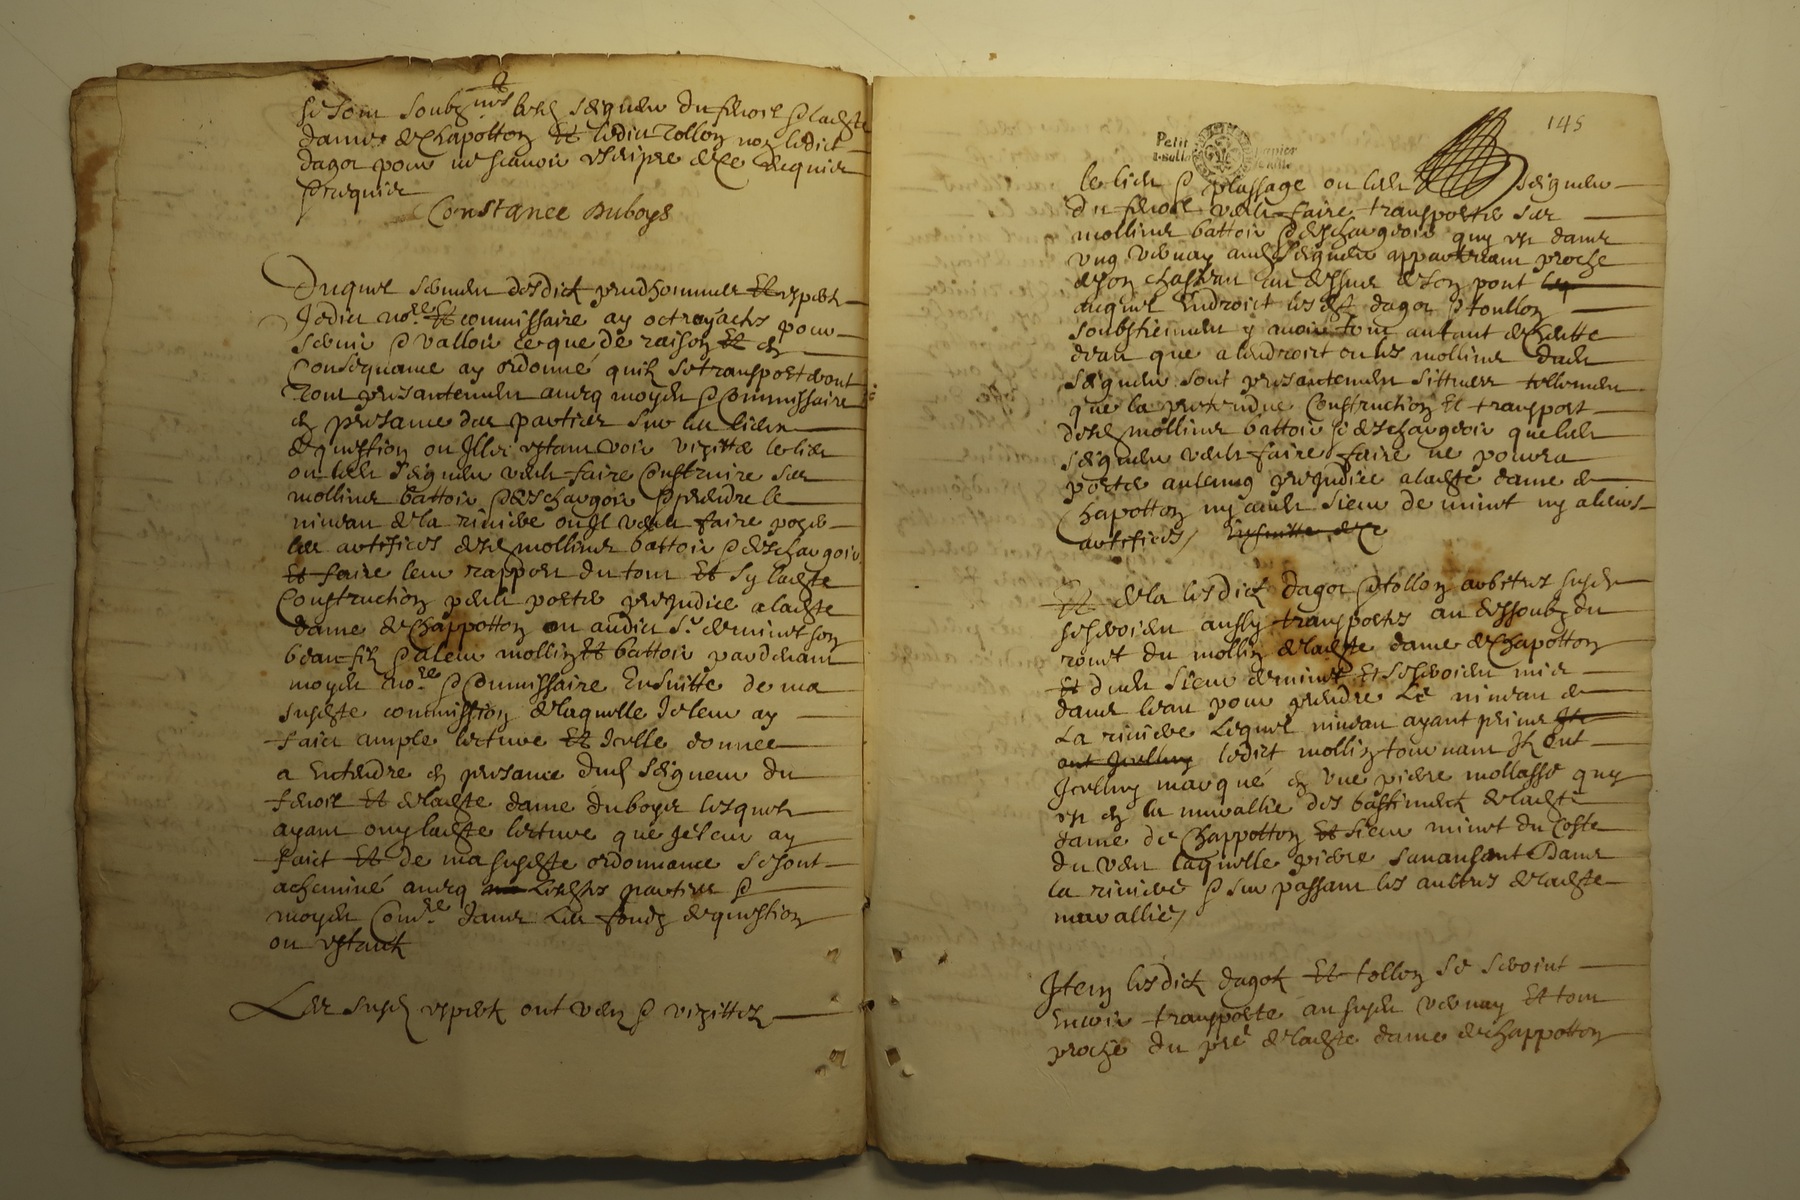 se sont soubz nés led seigneur du fenoil & ladte
dame de Chapotton Et ledict tollon non ledict
dagot pour ne scavoir escripre de ce enquier
& requier
Constance Duboys
Duquel serment desdict prudhommes Et expert
Jedict nore Et commissaire ay octroyé actes pour
servir & valloir ce que de raison Et en
Consequance ay ordonné quilz se transporteront
tout presantement avecq moydit & Commissaire
en presance des parties sur les lieux
de question ou Illec estant voir vizitter le lieu
ou ledit seigneur veult faire Construire ses
mollins battoir & deschargoir & prendre le
niveau de la riviere ou Il veult faire poser
les artifices desd mollins battoir & deschargoir
Et faire leur rapport du tout Et sy ladte
Construction peult porter prejudice a ladte
dame de Chappotton ou audict Sr de minet son
beau filz & a leur mollin Et battoir pardevant
moydit nore & Commissaire Ensuitte de ma
susdte commission de laquelle Je leur ay
faict ample lecture Et Icelle donnee
a Entendre en presance dud seigneur du
fenoil Et de ladte dame duboys lesquels
ayant ouy ladte lecture que Je leur ay
faict Et de ma susdte ordonnance se sont
acheminé avecq lesdtes parties &
moydit Comre dans les fondz de question
ou estantz
Les susd expertz ont veu & vizittez
145
Petit
papier
le lieu & plassage ou ledit seigneur
du fenoil veult faire transporter ses
mollins battoir & deschargoir quy est dans
ung vernay aud seigneur appartenant proche
de son chasteau au dessus de son pont
auquel Endroict lesdt dagot & toullon
soubstiennent y avoir tout autant de cheutte
deau que a lendroict ou les mollins dudit
seigneur sont presantement sittuees tellement
que la pretendue Construction Et transport
desd mollins battoir & deschargoir que ledit
seigneur veult faire faire ne pourra
porter aulcung prejudice a ladte dame de
Chapotton ny audit sieur de minet ny a leurs
artifices / Ensuitte de Ce
Et de la lesdict dagot & tollon arbitres susdit
se seroient aussy transportes au dessoubz du
rouet du mollin de ladte dame de Chapotton
Et dudit sieur de minet Et se seroient mis
dans leau pour prendre Le niveau de
La riviere Lequel niveau ayant prins
ledict mollin tournant Ilz ont
Jcelluy marqué en une pierre mollasse quy
est en la muraillie des bastiment de ladte
dame de Chappotton Et sieur minet du Coste
du vent laquelle pierre savansant Dans
la riviere & surpassant les aultres de ladte
muraillie /
Item lesdict dagot Et tollon se seroint
Encoir transporté au susdit vernay Et tout
proche du pré de ladte dame de Chappotton